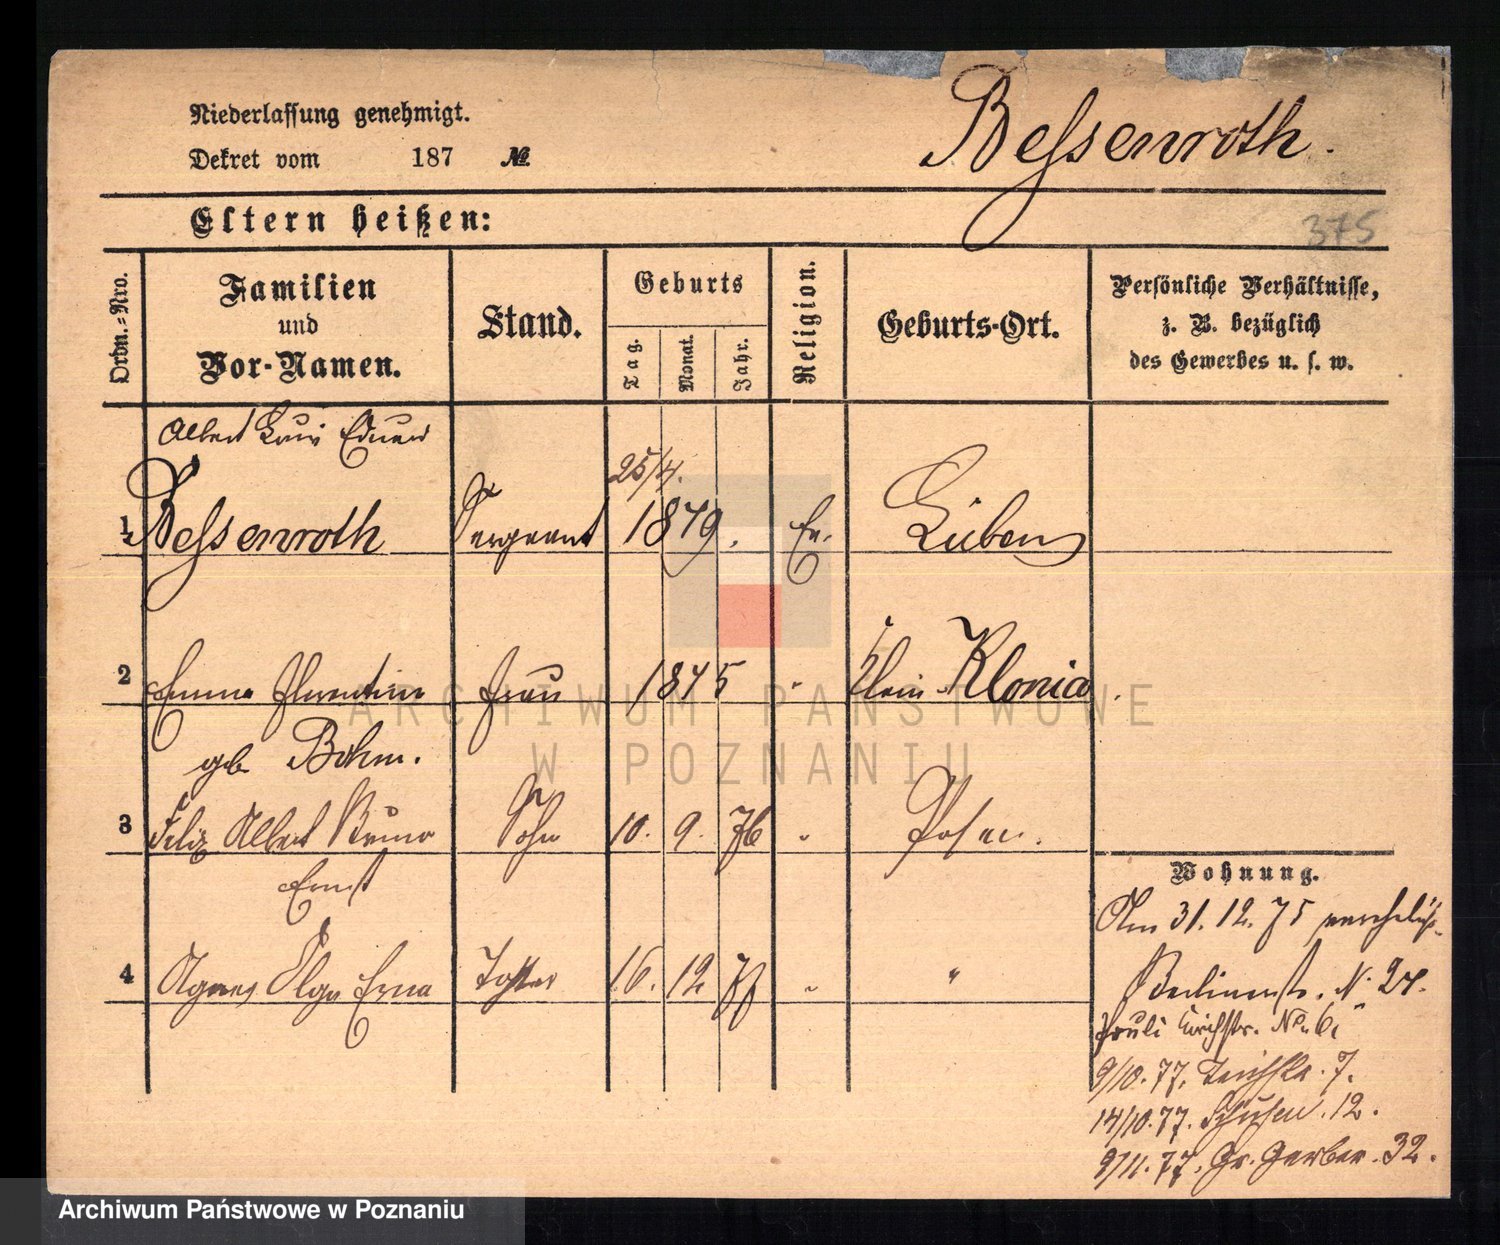 Niederlassung genehmigt.
Dekret vom 187 №
Bessenroth.
375
Eltern heißen:
Ordn.-Nro.
Familien und Vor-Namen.
Stand.
Geburts
Tag.
Monat.
Jahr.
Religion.
Geburts-Ort.
Persönliche Verhältnisse,
z. B. bezüglich
des Gewerbes u. s. w.
Albert Louis Eduard
25/4.
1 Bessenroth Sergeant 1849. Ev. Lüben
2 Emma Florentine Frau 1845 " Klein Klonia.
geb Bohm.
3 Felix Albert Bruno Sohn 10. 9. 76 " Posen.
Ernst
4 Agnes Olga Erna Tochter 16. 12. 77 " "
Wohnung.
Am 31. 12. 75 verehelicht.
Berlinerstr. N. 27.
Pauli Kirchstr. No. 6.
9/10. 77. Teichstr. 7.
14/10. 77. Schützen. 12.
9/11. 77. Gr. Gerber. 32.
ARCHIWUM PAŃSTWOWE
W POZNANIU
Archiwum Państwowe w Poznaniu